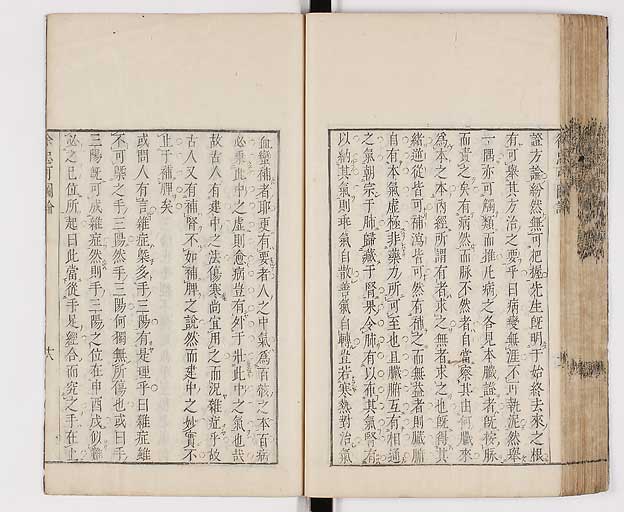 證方論紛然無可把握先生既明于始終去來之根
有可舉其方治之要乎曰病變無涯不可執泥然舉
一隅亦可觸類而推凡病之各見本臟證者既按脉
而責之矣有病然而脉不然者自當察其由何臟來
為本之本內經所謂有者求之無者求之也既得其
緒逆從皆可補瀉皆可然有補之而無益者則臟腑
自有本氣虛極非藥力所可至也且臟腑互有相通
之氣朝宗于肺歸藏于腎果令肺有以布其氣腎有
以納其氣則乖氣自散善氣自轉豈若寒熱對治氣
血蠻補者耶更有要者人之中氣為百骸之本百病
必乘此中之虛則愈病豈有外于壯此中之氣也哉
故古人有建中之法傷寒尚宜用之而況雜症乎故
古人又有補腎不如補脾之說然而建中之妙實不
止于補脾矣
或問人有言雜症槩多手三陽有是理乎曰雜症雖
不可槩之手三陽然手三陽何獨無所傷也或曰手
三陽既可成雜症然則手三陽之位在申酉戌似難
必之已位所起曰此當從手足經合而究之手在上
六